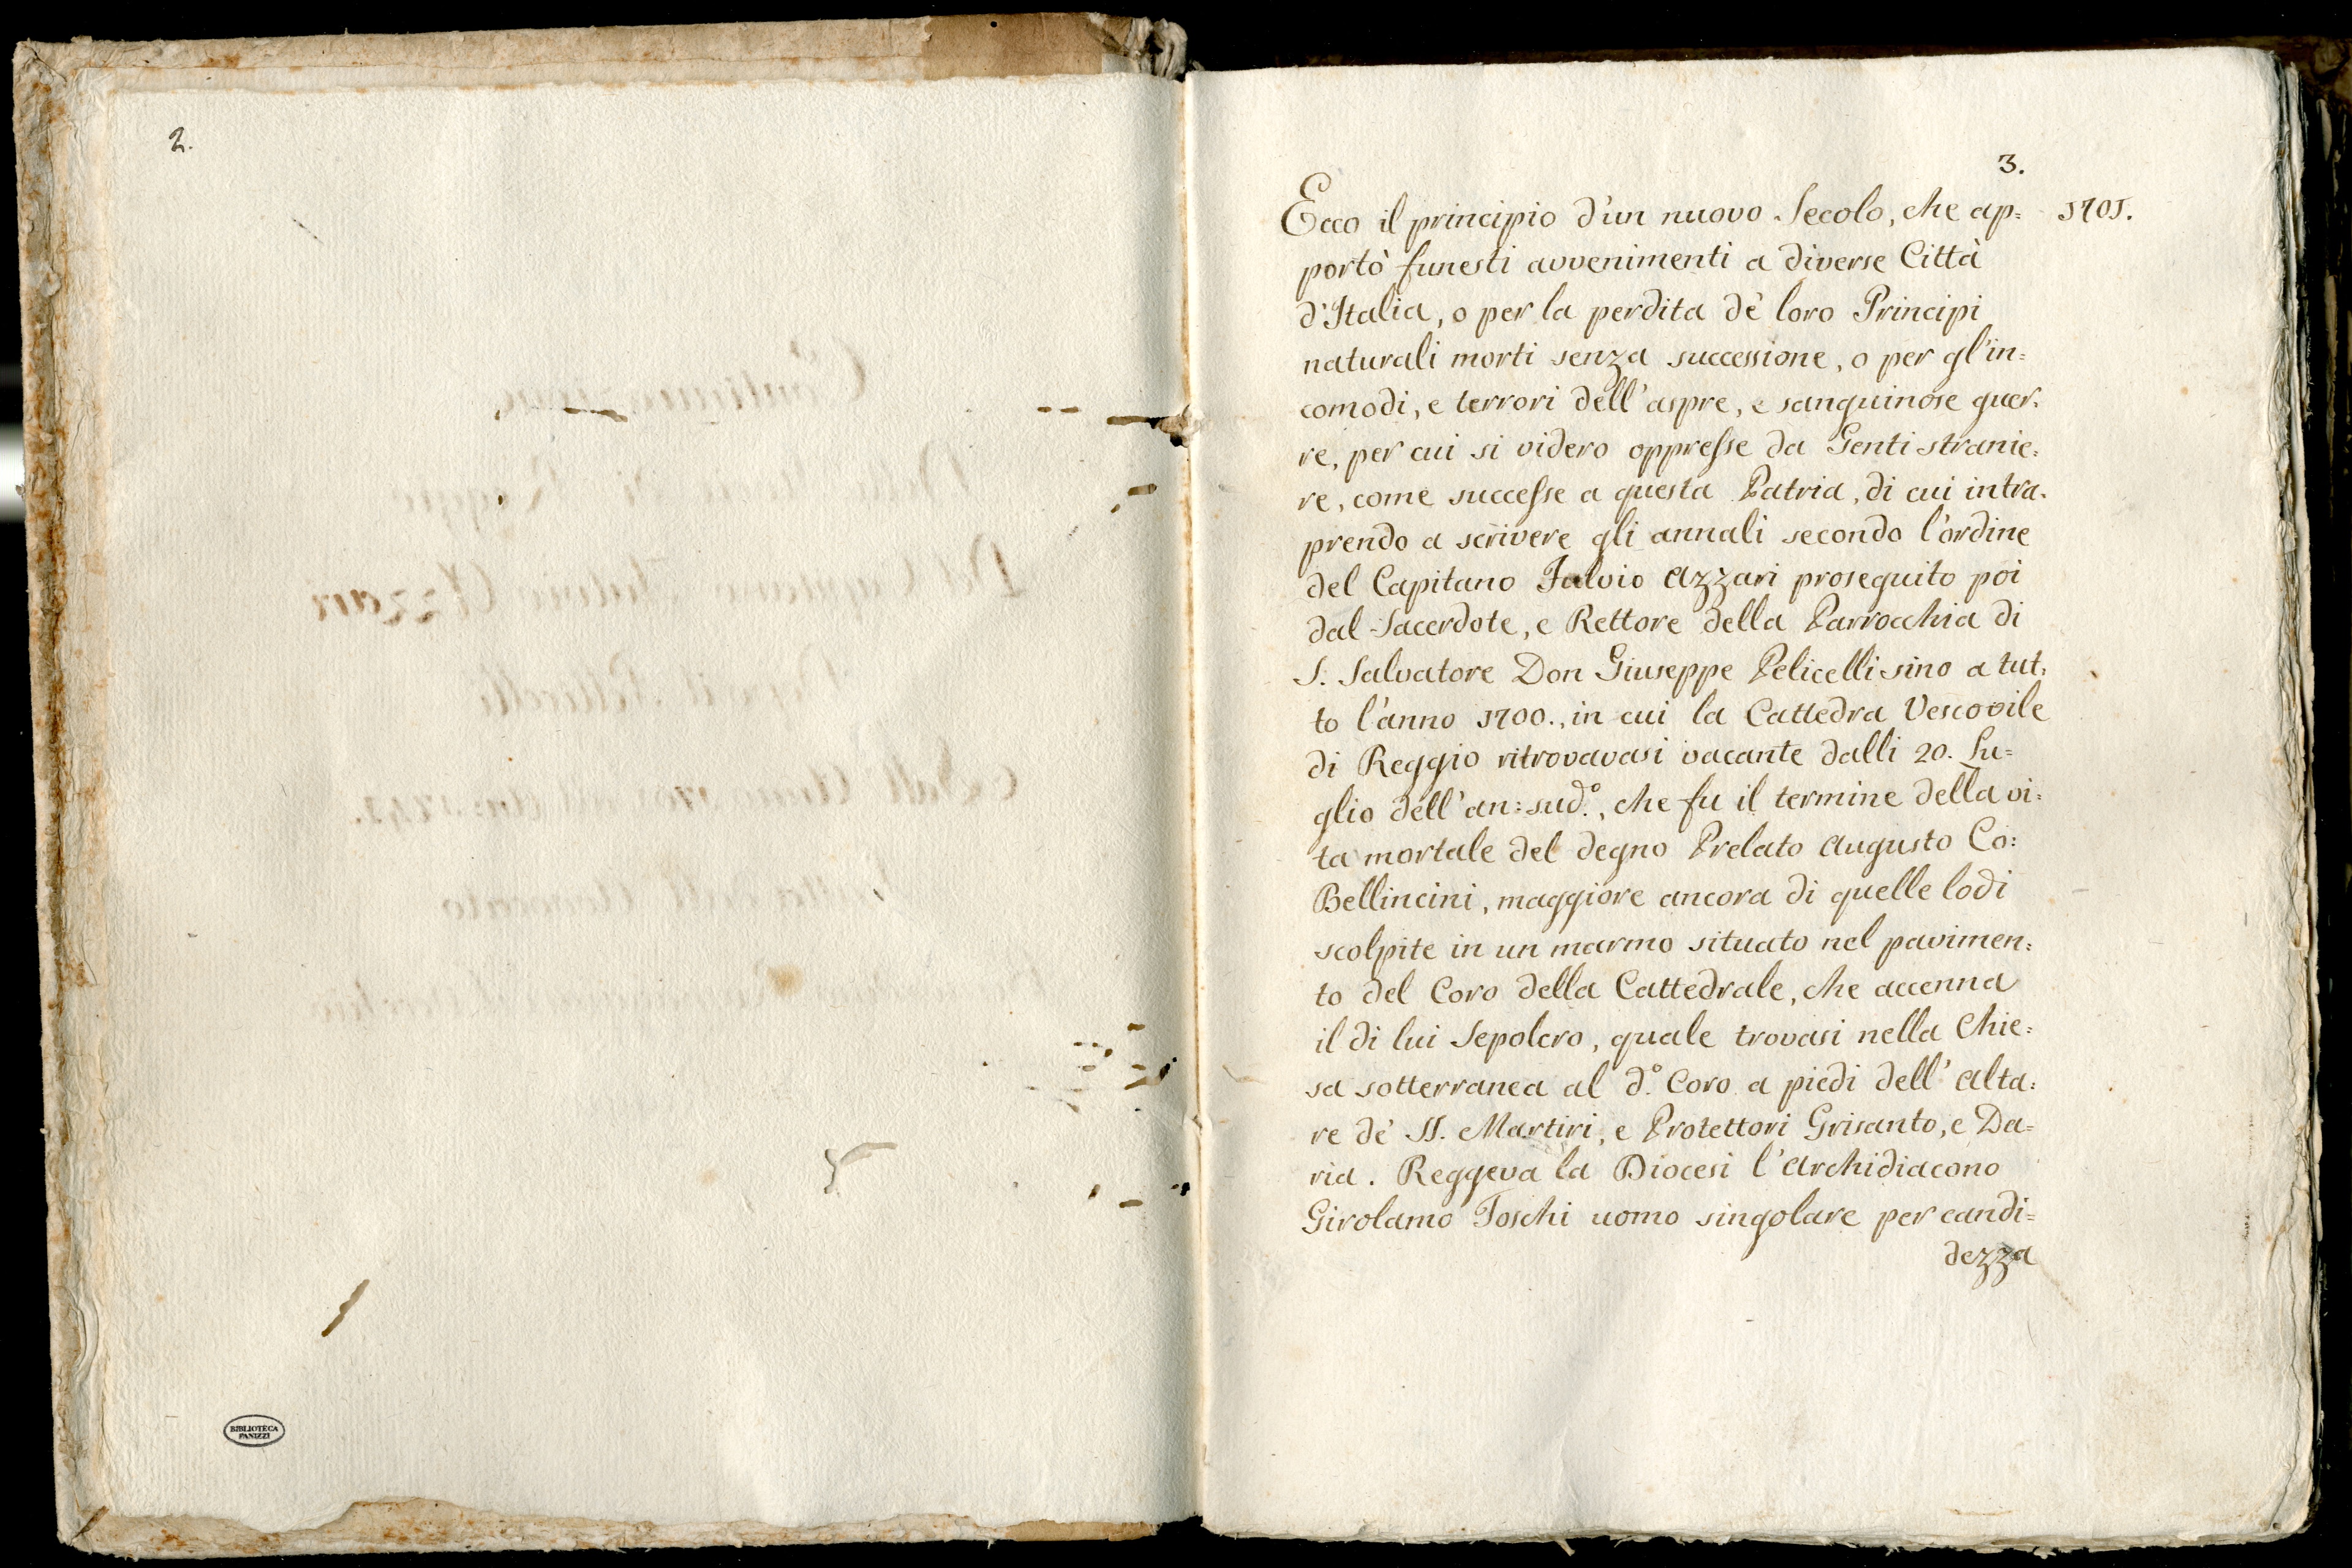 2.
BIBLIOTECA
PANIZZI
3.
1701.
Ecco il principio d'un nuovo Secolo, che ap=
portò funesti avvenimenti a diverse Città
d'Italia, o per la perdita de' loro Principi
naturali morti senza successione, o per gl'in=
comodi, e terrori dell'aspre, e sanguinose guer=
re, per cui si videro oppresse da Genti stranie=
re, come successe a questa Patria, di cui intra=
prendo a scrivere gli annali secondo l'ordine
del Capitano Fulvio Azzari proseguito poi
dal Sacerdote, e Rettore della Parrocchia di
S. Salvatore Don Giuseppe Pelicelli sino a tut=
to l'anno 1700., in cui la Cattedra Vescovile
di Reggio ritrovavasi vacante dalli 20. Lu=
glio dell'an: sud.º, che fu il termine della vi=
ta mortale del degno Prelato Augusto Co:
Bellincini, maggiore ancora di quelle lodi
scolpite in un marmo situato nel pavimen=
to del Coro della Cattedrale, che accenna
il di lui Sepolcro, quale trovasi nella Chie=
sa sotterranea al d.º Coro a piedi dell'Alta=
re de' SS. Martiri, e Protettori Grisanto, e Da=
ria. Reggeva la Diocesi l'Archidiacono
Girolamo Toschi uomo singolare per candi=
dezza